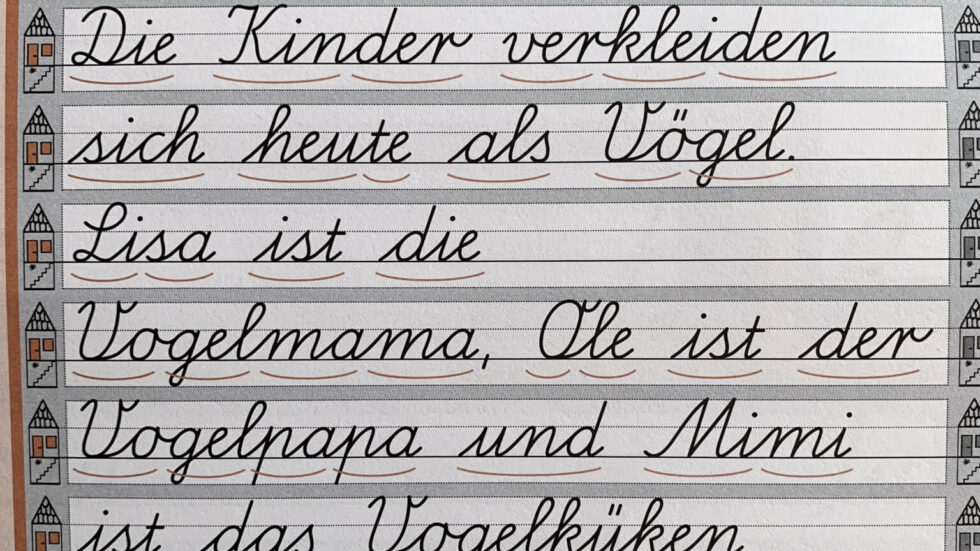 Die Kinder verkleiden
sich heute als Vögel.
Lisa ist die
Vogelmama, Ole ist der
Vogelpapa und Mimi
ist das Vogelküken